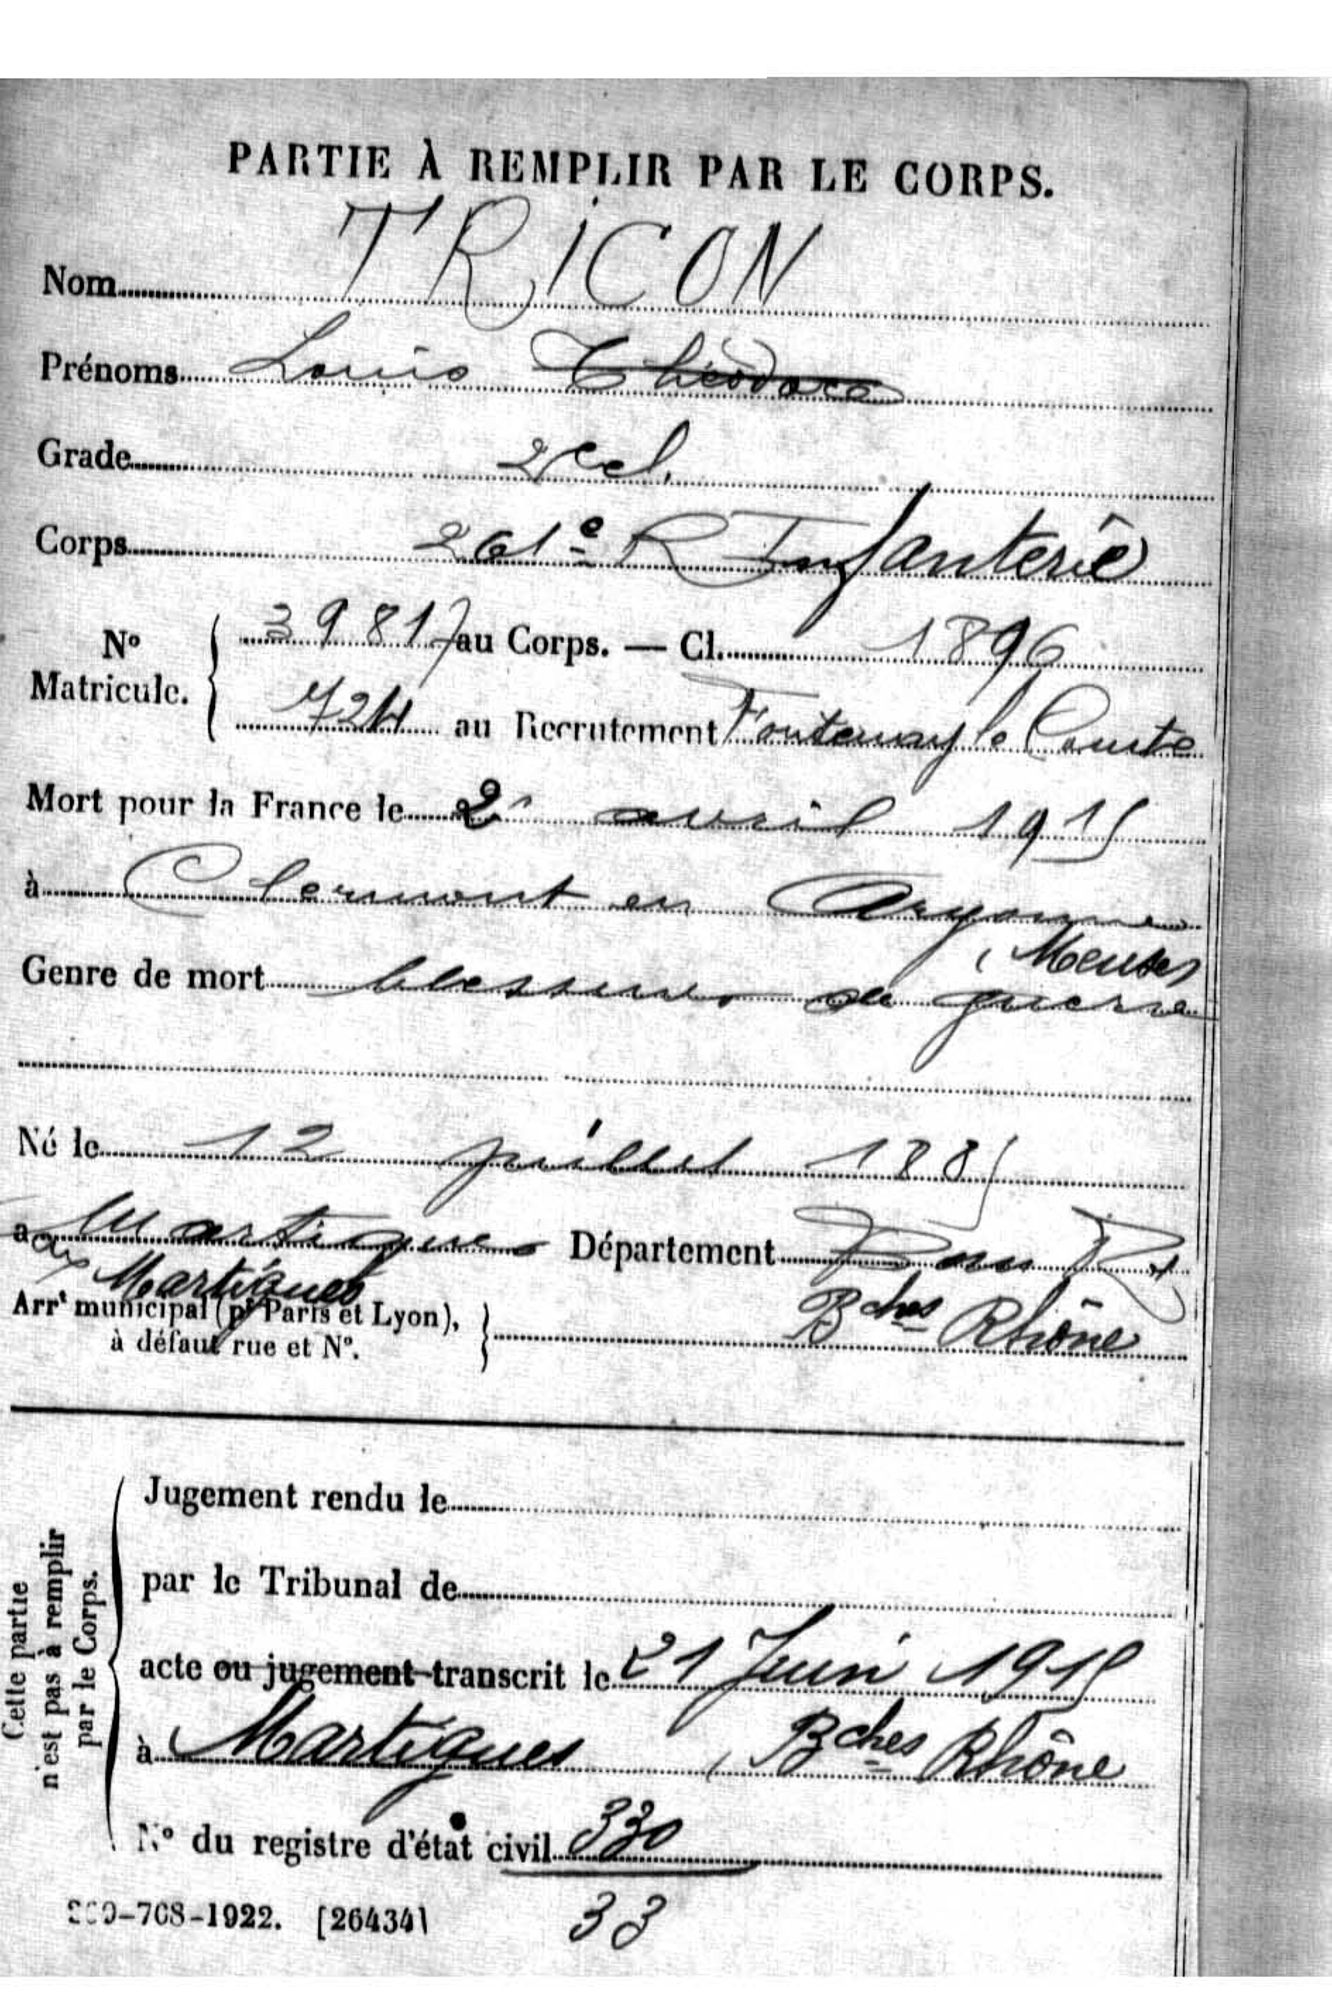 PARTIE À REMPLIR PAR LE CORPS.
Nom TRICON
Prénoms Louis Théodore
Grade 2e cl.
Corps 261e R Infanterie
No Matricule. 39817 au Corps. — Cl. 1896
724 au Recrutement Fontenay le Comte
Mort pour la France le 2 avril 1915
à Clermont en Argonne
(Meuse)
Genre de mort blessures de guerre
Né le 12 juillet 1885
à Martigues Département Bou R
aux Martigues
Bches Rhône
Arrt municipal (pr Paris et Lyon),
à défaut rue et No.
Cette partie
n'est pas à remplir
par le Corps.
Jugement rendu le
par le Tribunal de
acte ou jugement transcrit le 21 Juin 1915
à Martigues, Bches Rhône
No du registre d'état civil 330
-708-1922. [26434]
33